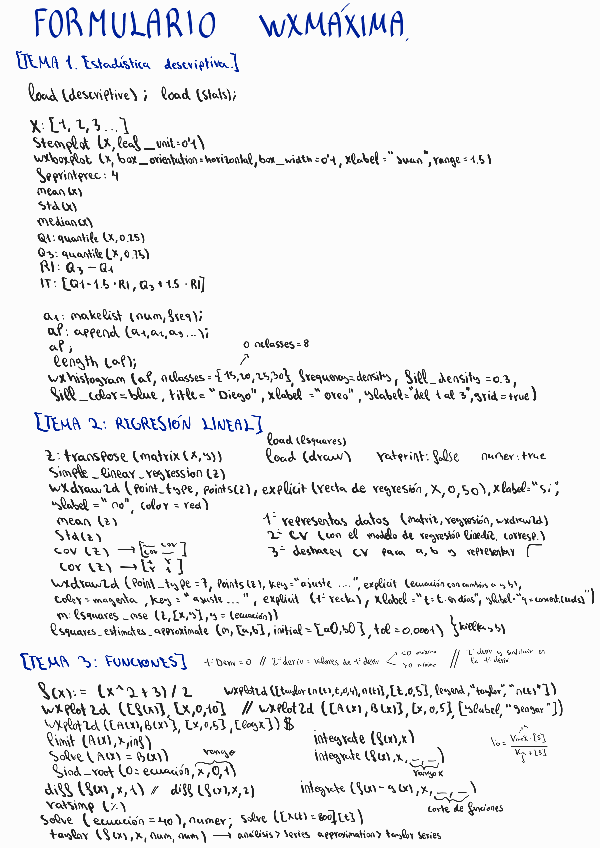 FORMULARIO WXMÁXIMA
[TEMA 1. Estadística descriptiva.]
load (descriptive) ; load (stats);
X: [1, 2, 3 ...]
Stemplot (x, leaf_unit=0'1)
wxboxplot (x, box_orientation=horizontal, box_width=0'1, xlabel="Juan", range=1.5)
fpprintprec: 4
mean(x)
Std(x)
median(x)
Q1: quantile (x, 0.25)
Q3: quantile (x, 0.75)
RI: Q3 - Q1
IT: [Q1-1.5·RI, Q3+1.5·RI]
a1: makelist (num, freq);
aP: append (a1, a2, a3 ...);
aP;
o nclasses=8
length (aP);
wxhistogram (aP, nclasses={15,20,25,30}, frequency=density, fill_density=0.3,
fill_color=blue, title="Diego", xlabel="oreo", ylabel="del 1 al 3", grid=true)
[TEMA 2: REGRESIÓN LINEAL]
load (lsquares)
z: transpose (matrix (x,y)) load (draw) ratprint: false numer: true
Simple_linear_regression (z)
wxdraw2d (point_type, points(z), explicit (recta de regresión, X, 0, 50), xlabel="Si",
ylabel="no", color=red)
mean (z) 1º representas datos (matriz, regresión, wxdraw2d)
Std (z) 2º CV (con el modelo de regresión linealiz. corresp.)
cov (z) → [cov cov] 3º deshacer CV para a, b y representar
cor (z) →
wxdraw2d (point_type=7, points(z), key="ajuste ....", explicit (ecuación con cambio a y b),
color=magenta, key="ajuste ...", explicit (1ª recta), xlabel="t=t. en días", ylabel=
m: lsquares_mse (z, [x,y], y=(ecuación))
lsquares_estimates_approximate (m, [a,b], initial=[a0,b0], tol=0.0001)
[TEMA 3: FUNCIONES] 1ª Deriv=0 // 2ª deriv = valores de 1ª deriv <0 máximo >0 mínimo // 2ª deriv y sustituir en la 1ª deriv
f(x):= (x^2+3)/2 wxplot2d ([taylor(n(t),t,0,4),n(t)],[t,0,5],[legend,"taylor","n(t)"])
wxplot2d ([f(x)], [x,0,10] // wxplot2d ([A(x), B(x)], [x,0,5], [ylabel, "gengar"])
wxplot2d ([A(x), B(x)], [x,0,5], [logx]) $
limit (A(x), x, inf) integrate (f(x), x)
Solve (A(x) = B(x)) rango integrate (f(x), x, _, _) rango x
find_root (0=ecuación, x, 0, 1)
diff (f(x), x, 1) // diff (f(x), x, 2) integrate (f(x)-g(x), x, _, _)
ratsimp (%) corte de funciones
Solve (ecuación=40), numer; solve ([X(t)=800],[t])
taylor (f(x), x, num, num) → analisis > series approximation > taylor series